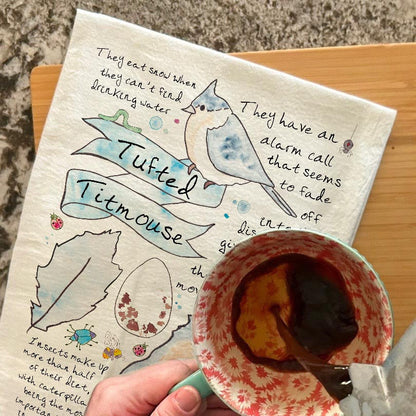 They eat snow when
they can't find
drinking water
They have an
alarm call
that seems
to fade
off
into
dis
gi
th
mo
Tufted
Titmouse
Insects make up
more than half
of their diet,
with caterpill
being the mo
important